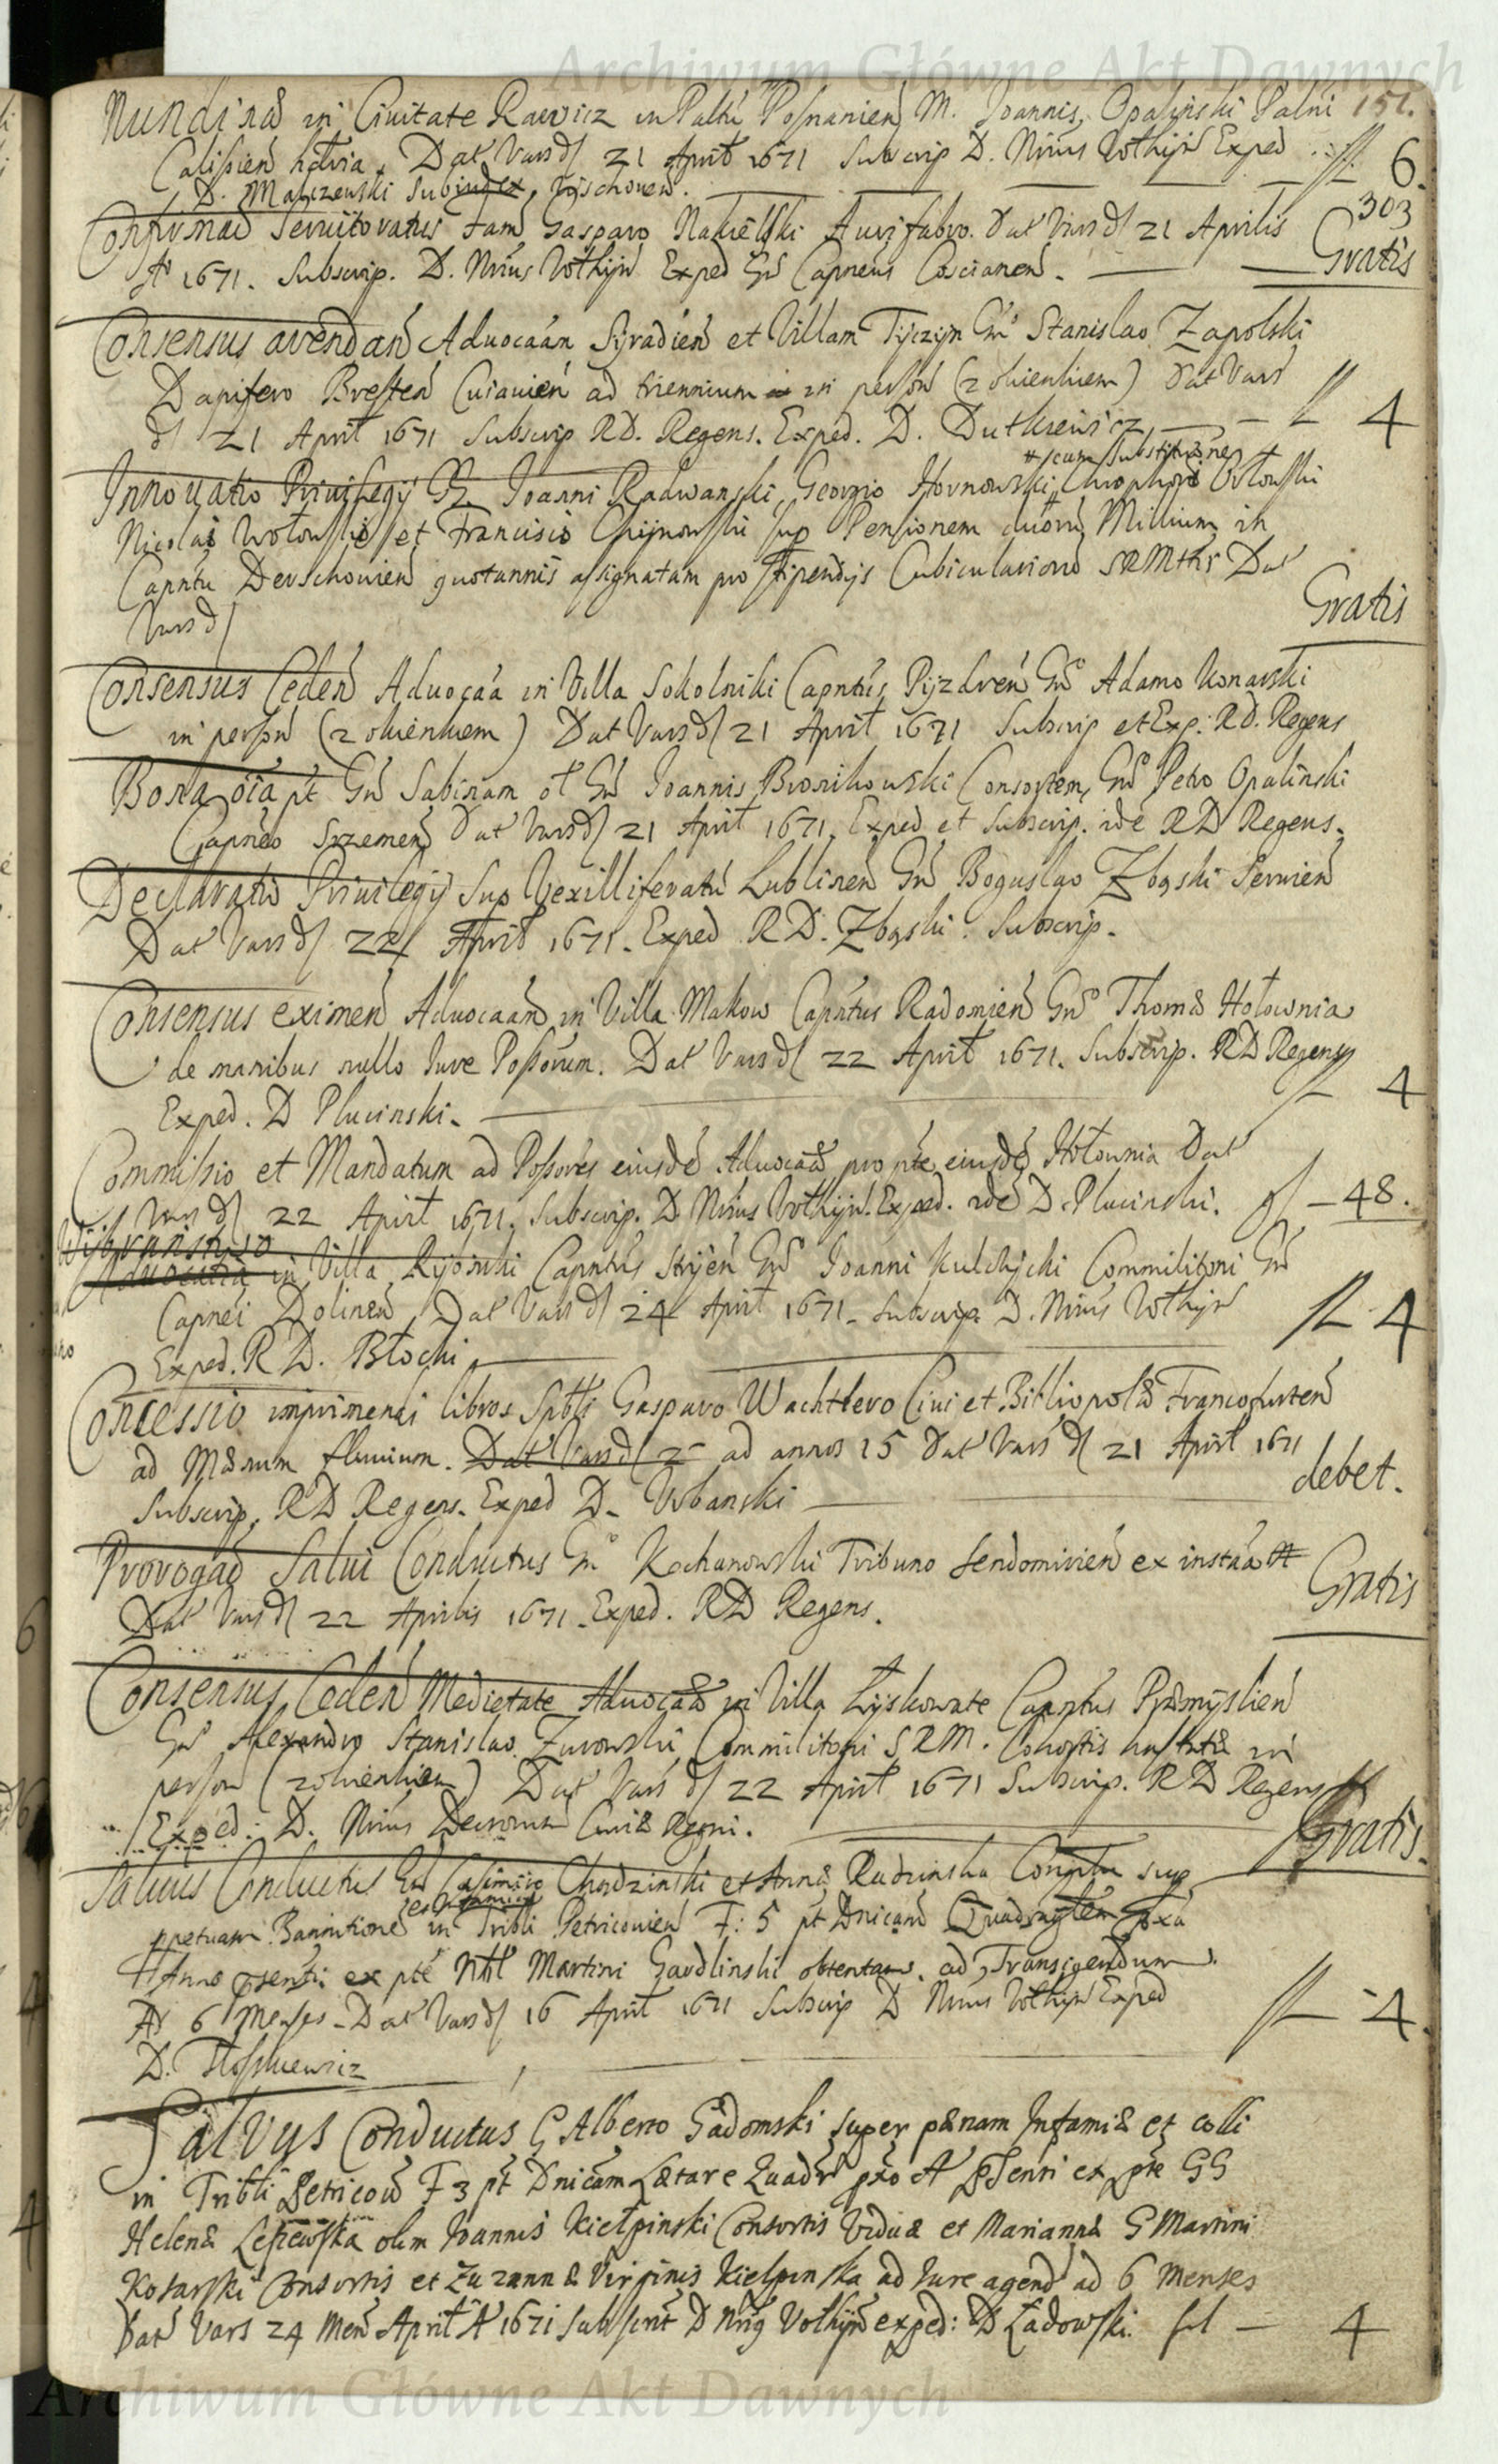 Archiwum Główne Akt Dawnych
Nundinae in Civitate Rawicz in Palntu Posnanien M. Joannis Opalinski Palni 151.
Calisien Dat Vars d 21 April 1671 Subscrip D. Nrius Wołhyn Exped fl 6.
D. Malczewski Subiudex Wschoven.
303
Confirmaó Servitoratus fam Gasparo Nakielski Aurifabro. Dat Vars d 21 Aprilis
Ao 1671. Subscrip. D. Nrius Wołhyn Exped Gn Capneus Coscianen. Gratis
Consensus arendan Advocaán Syradien et Villam Tyczyn Gn Stanislao Zapolski
Dapifero Bresten Cuiavien ad triennium in person (z okienkiem) Dat Vars
d 21 April 1671 Subscrip RD. Regens. Exped. D. Dutkiewicz fl 4
# cum substitutione
Innovatio Privilegij Joanni Radwanski, Georgio Hornowski, Chrophoro Orłowski
Nicolao et Francisco sup Pensionem Millium in
Capntu Derschovien quotannis assignatam pro stipendijs Cubiculariorum SRMttis Dat
Vars d Gratis
Consensus Ceden Advocaá in Villa Sokolniki Capntus Pyzdren Gno Adamo Konarski
in person (z okienkiem) Dat Vars d 21 April 1671 Subscrip et Exp: RD. Regens
Bona oia pt Gn Sabinam ol Gn Joannis Bronikowski Consortem, Gno Petro Opalinski
Capneo Srzemen Dat Vars d 21 April 1671. Exped et Subscrip. idé RD Regens.
Declaratio Privilegij Sup Vexilliferatu Lublinen Gn Boguslao Zbąski Servien
Dat Vars d 22 April 1671. Exped RD. Zbąski. Subscrip.
Consensus eximen Advocaán in Villa Makow Capntus Radomien Gno Thomae Hołownia
de manibus nullo Jure Possorum. Dat Vars d 22 April 1671. Subscrip. RD Regens
Exped. D Plucinski. fl 4
Commissio et Mandatum ad Possores eiusdé Advocaae pro pte eiusdé Hołownia Dat
Vars d 22 April 1671. Subscrip. D. Nrius Wołhyn. Exped. idé D. Plucinski. gl – 48.
Wybraństwo
Advocatia in Villa Capntus Stryien Gno Joanni Kulczycki Commilitoni Gn
Capnei Dolinen, Dat Vars d 24 April 1671. Subscrip. D. Nrius Wołhyn fl 4
Exped. RD. Błocki
Concessio imprimendi libros Sptbli Gasparo Wachtlero Civi et Bibliopolae Francofurten
ad Maenum fluvium. Dat Vars d 2 ad annos 15 Dat Vars d 21 April 1671
Subscrip. RD Regens. Exped D. Urbanski debet.
Prorogaó Salvi Conductus Gn Kochanowski Tribuno Sendomirien ex instáa
Dat Vars d 22 Aprilis 1671. Exped. RD Regens. Gratis
Consensus Ceden Medietate Advocaae in Villa Lyskowate Capntus Praemyslien
Gn Alexandro Stanislao Zurowski Commilitoni SRM. Cohortis hastatae in
person (z okienkiem) Dat Vars d 22 April 1671 Subscrip. RD Regens
Exped: D. Nrius Decretorum Curiae Regni. Gratis.
Salvus Conductus Gn Casimiro Chądzinski et Annae Radzinska Conjugibus sup
et Infamiae
ppetuam Bannitioné in Tribli Petricovien F: 5 pt Dnicam Quadragesimae pxa
Anno psenti ex pte Ntl Martini Gardlinski obtentam. ad Transigendum.
Ad 6 Menses. Dat Vars d 16 April 1671 Subscrip D Nrius Wołhyn Exped fl – 4.
D.
Salvus Conductus G Alberto Gadomski super paenam Infamiae et colli
in Tribli Petricov F 3 pt Dnicam Laetare Quadr pxo A psenti ex pte GG
Helenae Lesiewska olim Joannis Kiełpinski Consortis Viduae et Mariannae G Martini
Kosarski Consortis et Zuzannae Virginis Kielpinska ad Jure agend ad 6 Menses
Dat Vars 24 Men April A 1671 Subscrit D Nrig Vołhyn exped: D Ładowski. fl – 4
Archiwum Główne Akt Dawnych